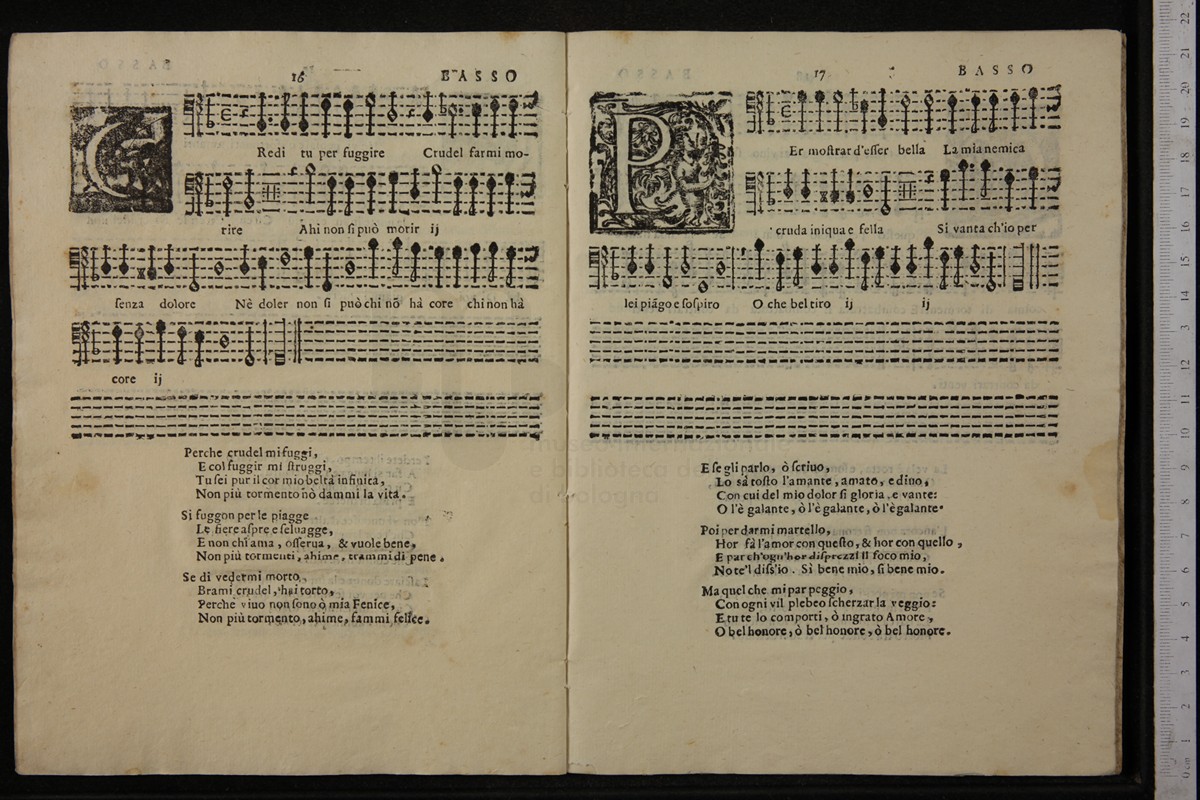 16
BASSO
CRedi tu per fuggire Crudel farmi mo-
rire Ahi non ſi può morir ij
ſenza dolore Nè doler non ſi può chi nõ hà core chi non hà
core ij
Perche crudel mi fuggi,
E col fuggir mi ſtruggi,
Tu ſei pur il cor mio beltà infinita,
Non più tormento nò dammi la vita.
Si fuggon per le piagge
Le fiere aſpre e ſeluagge,
E non chi ama, oſſerua, & vuole bene,
Non più tormenti, ahime, trammi di pene.
Se di vedermi morto,
Brami crudel, hai torto,
Perche viuo non ſono ò mia Fenice,
Non più tormento, ahime, fammi felice.
17
BASSO
PEr moſtrar d'eſſer bella La mia nemica
cruda iniqua e fella Si vanta ch'io per
lei piãgo e ſoſpiro O che bel tiro ij ij
E ſe gli parlo, ò ſcriuo,
Lo sà toſto l'amante, amato, e diuo,
Con cui del mio dolor ſi gloria, e vante:
O l'è galante, ò l'è galante, ò l'è galante.
Poi per darmi martello,
Hor fà l'amor con queſto, & hor con quello,
E par ch'ogn'hor diſprezzi il foco mio,
No te'l diſs'io. Sì bene mio, ſi bene mio.
Ma quel che mi par peggio,
Con ogni vil plebeo ſcherzar la veggio:
E tu te lo comporti, ò ingrato Amore,
O bel honore, ò bel honore, ò bel honore.